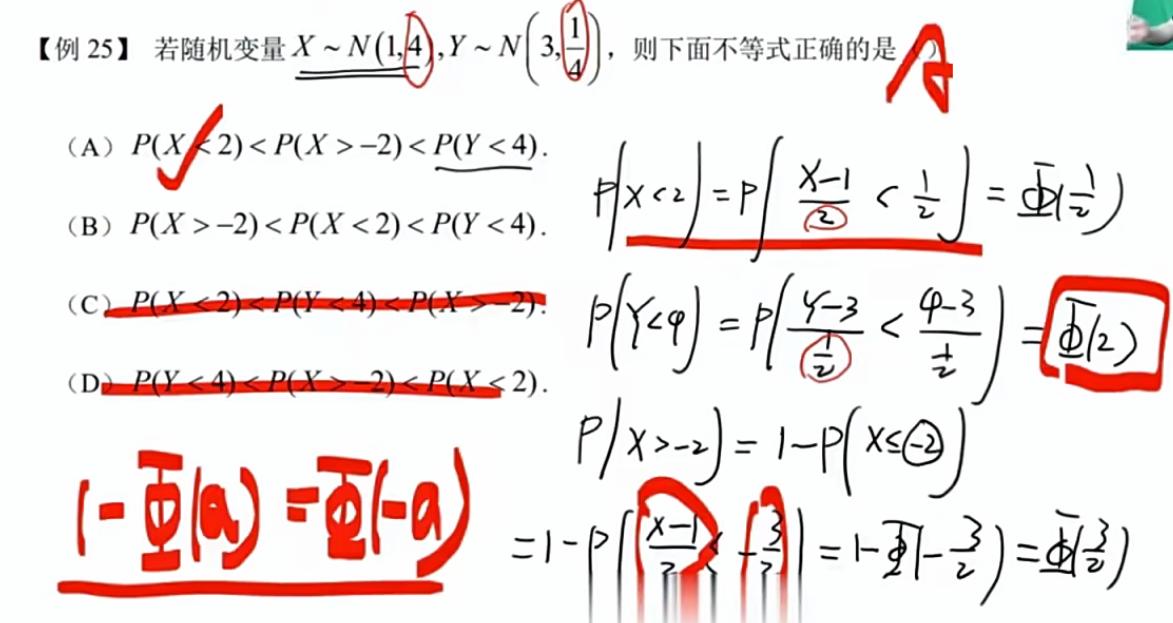 【例 25】 若随机变量 X ~ N(1,4), Y ~ N(3, 1/4), 则下面不等式正确的是 ( ) A
(A) P(X < 2) < P(X > -2) < P(Y < 4).
(B) P(X > -2) < P(X < 2) < P(Y < 4).
(C) P(X < 2) < P(Y < 4) < P(X > -2).
(D) P(Y < 4) < P(X > -2) < P(X < 2).
P(X<2) = P((X-1)/2 < 1/2) = Φ(1/2)
P(Y<4) = P((Y-3)/(1/2) < (4-3)/(1/2)) = Φ(2)
P(X>-2) = 1-P(X≤-2)
= 1-P((X-1)/2 ≤ -3/2) = 1-Φ(-3/2) = Φ(3/2)
1-Φ(a) = Φ(-a)